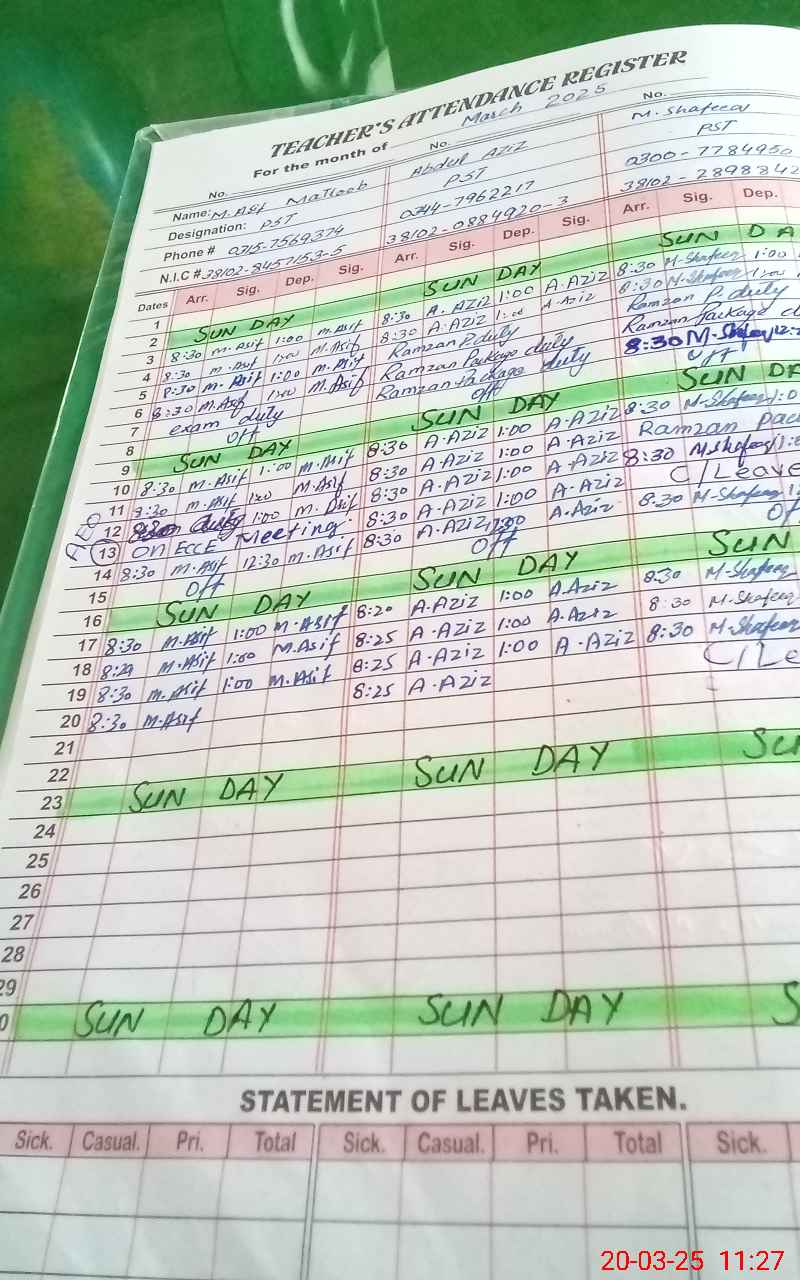 TEACHER'S ATTENDANCE REGISTER
For the month of March 2025
No. No. No.
Name: M. Asif Abdul Aziz M. Shafeeq
Designation: PST PST PST
Phone # 0315-7569374 0344-7962217 0300-7784950
N.I.C # 38102-8457153-5 38102-0884920-3 38102-2898842
Dates Arr. Sig. Dep. Sig. Arr. Sig. Dep. Sig. Arr. Sig. Dep.
1
2 SUN DAY SUN DAY SUN DA
3 8:30 M.Asif 1:00 M.Asif 8:30 A.AZIZ 1:00 A.AZIZ 8:30 M-Shafeeq 1:00
4 8:30 M.Asif 1:00 M.Asif 8:30 A.AZIZ 1:00 A.AZIZ 8:30 M-Shafeeq 1:00
5 8:30 M.Asif 1:00 M.Asif Ramzan P.duty Ramzan P.duty
6 8:30 M.Asif 1:00 M.Asif Ramzan Package duty Ramzan Package d
7 exam duty Ramzan Package duty 8:30 M-Shafeeq 12:
8 off off off
9 SUN DAY SUN DAY SUN DA
10 8:30 M.Asif 1:00 M.Asif 8:30 A.AZIZ 1:00 A.AZIZ 8:30 M-Shafeeq 1:0
11 8:30 M.Asif 1:00 M.Asif 8:30 A.AZIZ 1:00 A.AZIZ Ramzan pac
12 duty 1:00 M.Asif 8:30 A.AZIZ 1:00 A.AZIZ 8:30 M.Shafeeq
13 ON ECCE Meeting 8:30 A.AZIZ 1:00 A.AZIZ C/Leave
14 8:30 M.Asif 12:30 M.Asif 8:30 A.AZIZ A.Aziz 8:30 M-Shafeeq
15 off off of
16 SUN DAY SUN DAY SUN
17 8:30 M.Asif 1:00 M.Asif 8:20 A.AZIZ 1:00 A.Aziz 8:30 M-Shafeeq
18 8:29 M.Asif 1:00 M.Asif 8:25 A.AZIZ 1:00 A.Aziz 8:30 M-Shafeeq
19 8:30 M.Asif 1:00 M.Asif 8:25 A.AZIZ 1:00 A.AZIZ 8:30 M-Shafeeq
20 8:30 M.Asif 8:25 A.AZIZ C/Le
21
22
23 SUN DAY SUN DAY SU
24
25
26
27
28
29
0 SUN DAY SUN DAY S
STATEMENT OF LEAVES TAKEN.
Sick. Casual. Pri. Total Sick. Casual. Pri. Total Sick.
20-03-25 11:27